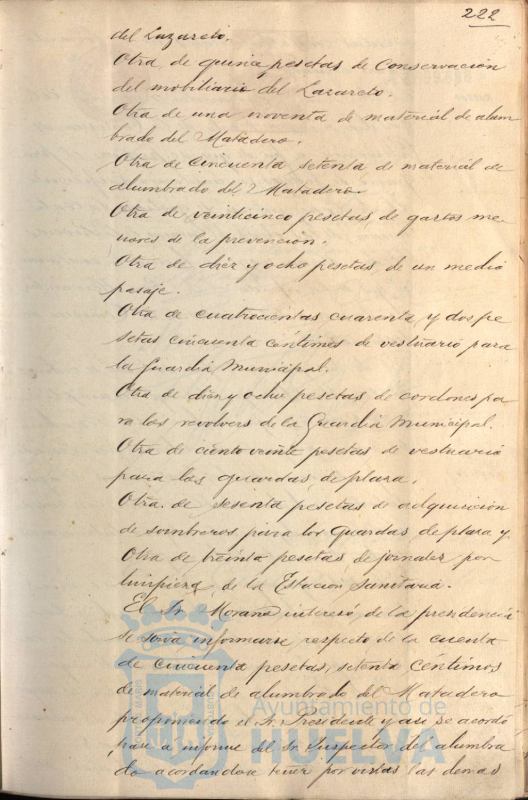 222
del Lazareto.
Otra de quince pesetas de Conservación
del mobiliario del Lazareto.
Otra de una noventa de material de alum
brado del Matadero.
Otra de cincuenta setenta de material de
alumbrado del Matadero.
Otra de veinticinco pesetas de gastos me
nores de la prevención.
Otra de diez y ocho pesetas de un medio
pasaje.
Otra de cuatrocientas cuarenta y dos pe
setas cincuenta céntimos de vestuario para
la Guardia Municipal.
Otra de diez y ocho pesetas de cordones pa
ra los revolvers de la Guardia Municipal.
Otra de ciento veinte pesetas de vestuario
para los guardas de plaza.
Otra de sesenta pesetas de adquisición
de sombreros para los guardas de plaza y
Otra de treinta pesetas de jornales por
limpieza de la Estación Sanitaria.
El Sr. Morano interesó de la presidencia
se sirva informarse respecto de la cuenta
de cincuenta pesetas, setenta céntimos
de material de alumbrado del Matadero
proponiendo el Sr. Presidente y asi se acordó
pase a informe del Sr. Inspector del alumbra
do acordandose por vistas las demas
Ayuntamiento de
HUELVA